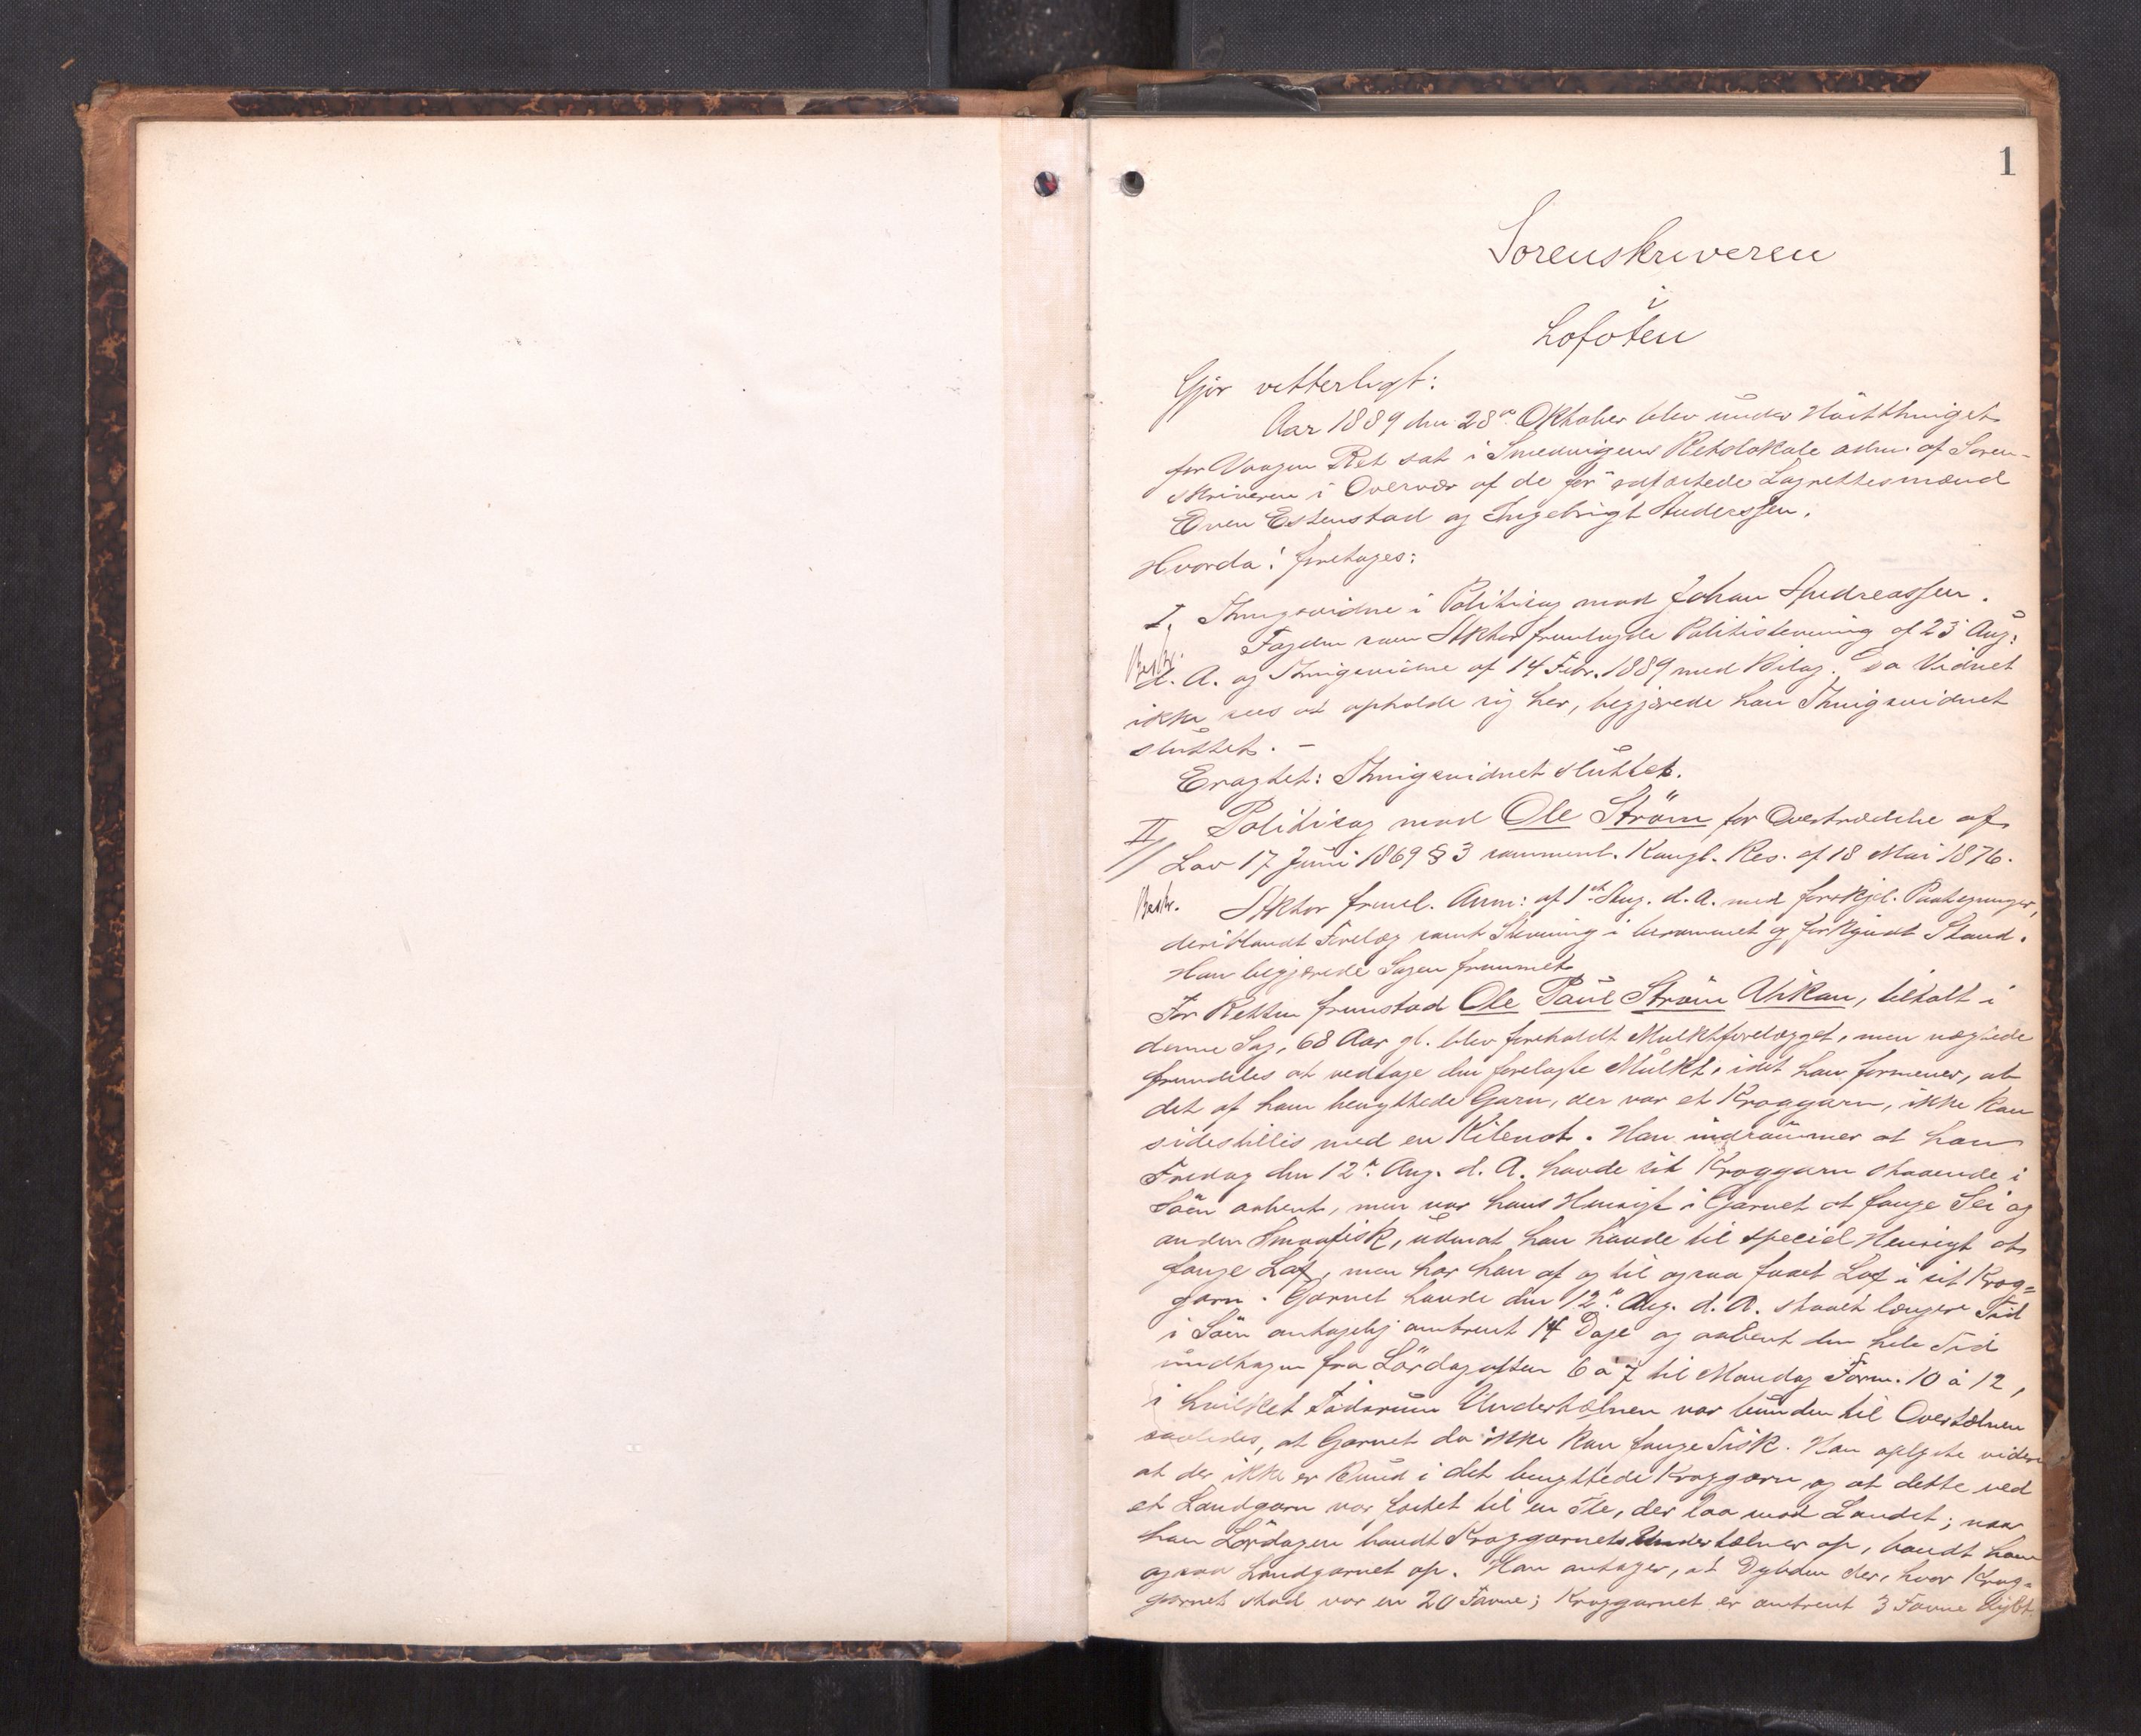 1
Sorenskriveren
i
Lofoten
Gjör vitterligt:
Aar 1889 den 28de Oktober blev under Höstthinget
for Vaagan Ret sat i Smedvigens Retslokale adm. af Soren-
skriveren i Overvær af de för edfæstede Lagrettesmænd
Even Estenstad og Ingebrigt Anderssen.
Hvorda! foretoges:
I. Thingsvidne i Politisag mod Johan Andreassen.
Fogden som Aktor fremlagde Politistevning af 23 Aug:
Besk.
d. A. og Thingsvidne af 14 Febr. 1889 med Bilag. Da Vidnet
ikke sees at opholde sig her, begjærede han Thingsvidnet
sluttet. -
Eragtet: Thingsvidnet sluttet.
II Politisag mod Ole Ström for Overtrædelse af
Lov 17 Juni 1869 § 3 sammenl. Kongl. Res. af 18 Mai 1876.
Besk. Aktor freml. Anm: af 1st Aug. d. A. med forskjel. Paategninger,
deriblandt Forelæg samt Stevning i berammet og forkyndt Stand.
Han begjærede Sagen fremmet.
For Retten fremstod Ole Paul Ström Vikan, tiltalt i
denne Sag, 68 Aar gl. blev foreholdt Mulktforelægget, men nægtede
fremdeles at vedtage den forelagte Mulkt, idet han formener, at
det af ham benyttede Garn, der var et Kroggarn, ikke kan
sidestilles med en Kilenot. Han indrömmer at han
Fredag den 12te Aug. d. A. havde sit Kroggarn staaende i
Söen aabent, men var hans Hensigt i Garnet at fange Sei og
anden Smaafisk, uden at han havde til speciel Hensigt at
fange Lax, men har han af og til ogsaa faaet Lax i sit Krog=
garn. Garnet havde den 12te Aug. d. A. staaet længere Tid
i Söen antagelig omtrent 14 Dage og aabent den hele Tid
undtagen fra Lördag aften 6 a 7 til Mandag Form. 10 à 12,
i hvilket Tidsrum Undertælnen var bunden til Overtælnen
saaledes, at Garnet da ikke kan fange Fisk. Han oplyste videre
at der ikke er Bund i det benyttede Kroggarn og at dette ved
et Landgarn var fæstet til en Ile, der laa mod Landet; naar
han Lördagen bandt Kroggarnets Undertælner op, bandt han
ogsaa Landgarnet op. Han antager, at Dybden der, hvor Krog-
garnet stod var en 20 Favne; Kroggarnet er omtrent 3 Favne dybt